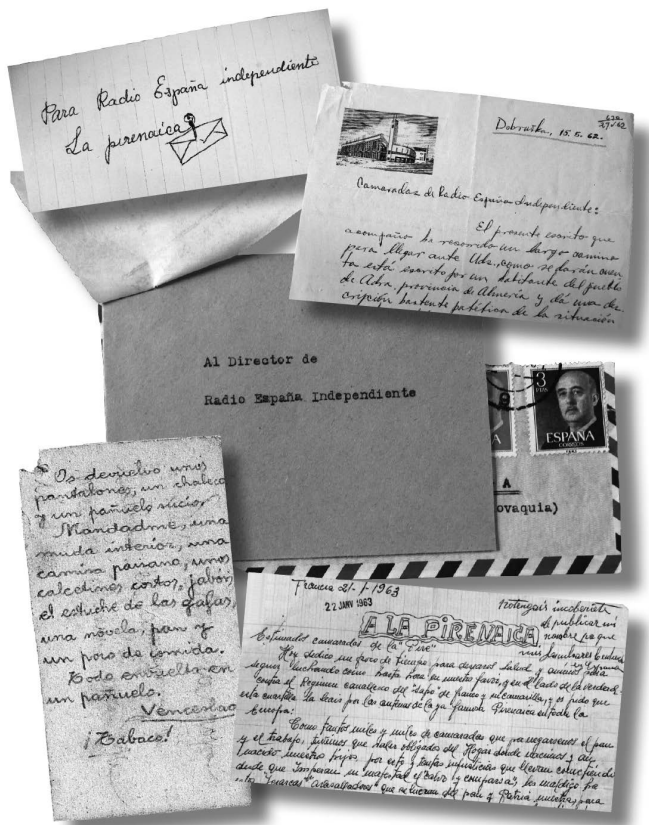 Para Radio España independiente
La pirenaica
Dobruška, 15.5.62.
Camaradas de Radio España Independiente:
El presente escrito que
acompaño ha recorrido un largo camino
para llegar ante Uds, como se darán cuen
ta está escrito por un habitante del pueblo
de Adra, provincia de Almería y dá una des
cripción bastante patética de la situación
Al Director de
Radio España Independiente
3
PTAS
ESPAÑA
CORREOS
A
A
ovaquia)
Os devuelvo unos
pantalones, un chaleco
y un pañuelo sucio.
Mandadme, una
muda interior, una
camisa paisano, unos
calcetines cortos, jabón,
el estuche de las gafas,
una novela, pan y
un poco de comida.
Todo envuelto en
un pañuelo.
Venceslao
¡Tabaco!
Francia 21-1-1963
22 JANV 1963
A LA PIRENAICA
no tengais inconveniente
de publicar mi
nombre pa que
mis familiares
Estimados camaradas de la "Pire"
Hoy dedico un poco de tiempo para desearos salud y animos para
seguir luchando como hasta hora en nuestro favor, y en el lado de la verdad
contra el Regimen canallesco del Sapo de franco y su camarilla, y os pido que
esta cuartilla la leais por las antenas de la gran famosa Pirenaica en toda la
Europa:
Como tantos miles y miles de camaradas que pa negarsenos el pan
y el trabajo, tuvimos que salir obligados del Hogar donde nacimos y an
nacido nuestros hijos, por esto y tantas injusticias que llevan cometiendo
desde que Imperan su majestad el Calvo y comparsa, los maldigo
que se lucran del pan y Patria nuestras, para